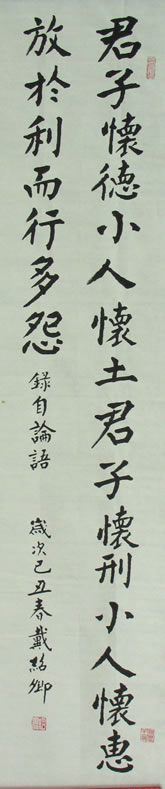 君子懷德小人懷土君子懷刑小人懷惠
放於利而行多怨 錄自論語 歲次己丑春戴紹卿